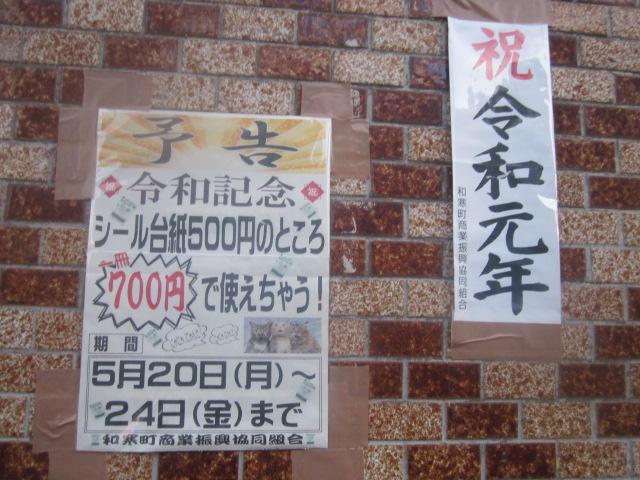 予告
祝 令和記念 祝
シール台紙500円のところ
700円で使えちゃう!
期間
5月20日(月)~
24日(金)まで
和寒町商業振興協同組合
祝令和元年
和寒町商業振興協同組合